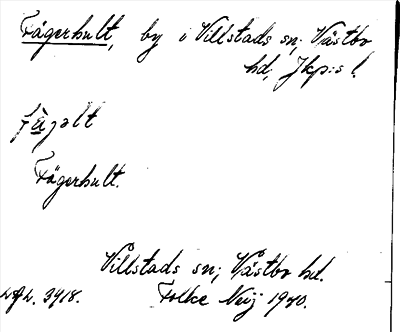 Fågerhult, by i Villstads sn; Västbo
hd, Jkp:s l.
Fågerhult.
Villstads sn; Västbo hd.
3918. Folke 1940.